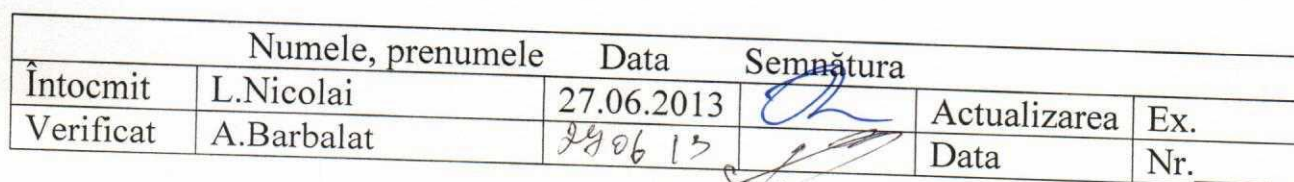 Numele, prenumele Data Semnătura
Întocmit L.Nicolai 27.06.2013 Actualizarea Ex.
Verificat A.Barbalat 06 13 Data Nr.